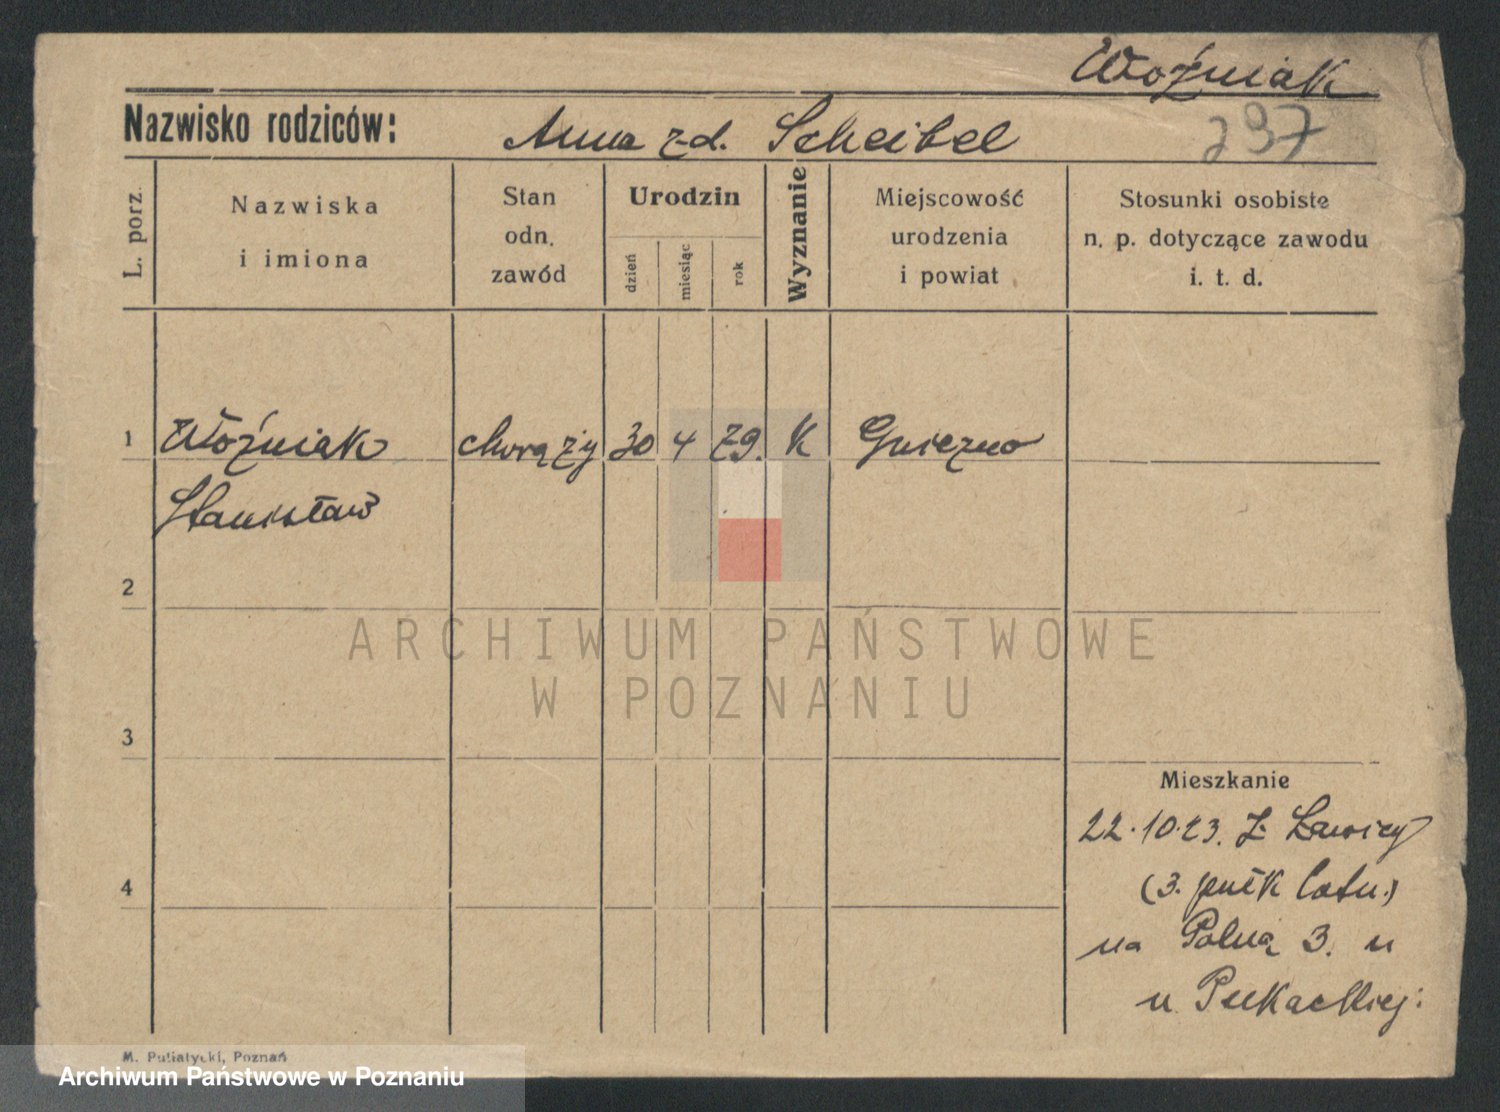 Woźniak
Nazwisko rodziców: Anna z d. Scheibel
297
L. porz.
Nazwiska
i imiona
Stan
odn.
zawód
Urodzin
dzień
miesiąc
rok
Wyznanie
Miejscowość
urodzenia
i powiat
Stosunki osobiste
n. p. dotyczące zawodu
i. t. d.
1 Woźniak chorąży 30 4 79. K Gniezno
Stanisław
2
ARCHIWUM PAŃSTWOWE
W POZNANIU
3
Mieszkanie
22.10.23. z Ławicy
4 (3. pułk lotn.)
na Polną 3. u
u
M. Putiatycki, Poznań
Archiwum Państwowe w Poznaniu